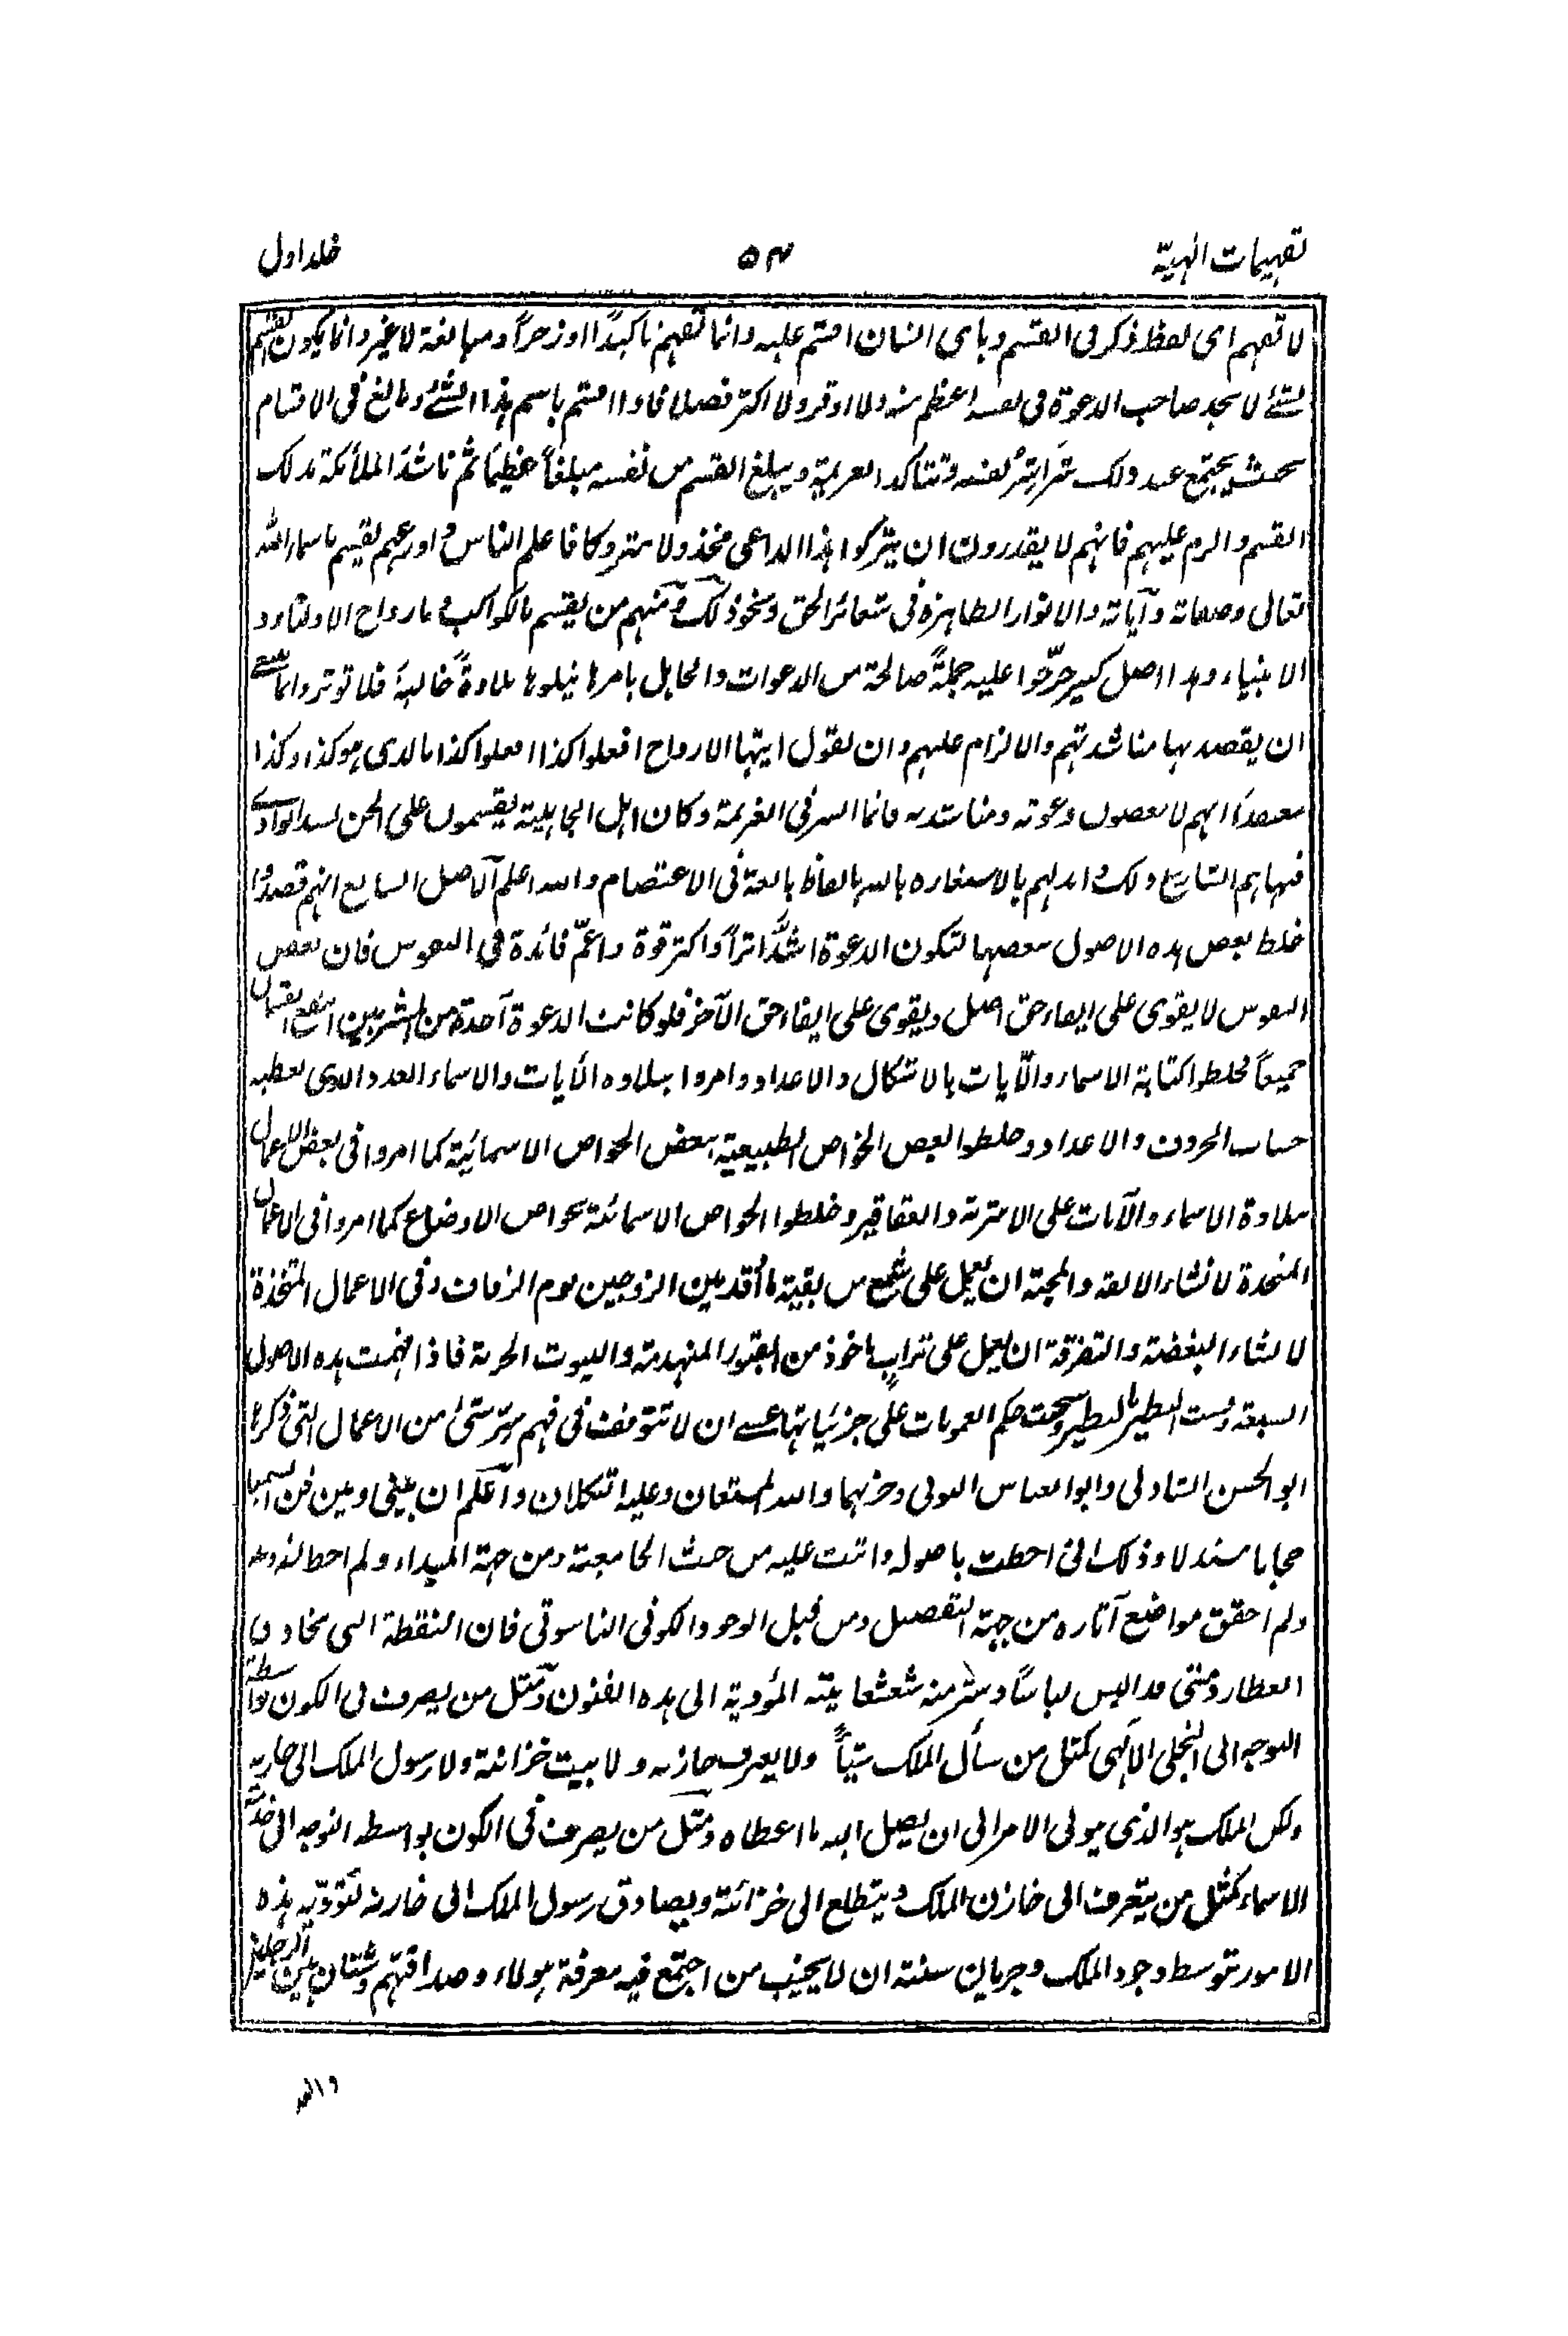 تفهيمات الهية ٥٤ جلد اول
لا تفهم اى لفظ ذكر فى القسم وباى لسان اقسم عليه وانما تفهم تاكيدًا او زجراً ومبالغة لا غير وانما يكون القسم
بشئ لا يجد صاحب الدعوة فى نفسه اعظم منه ولا اوقر ولا اكثر فضلا فاذا اقسم باسم هذا الشئ وبالغ فى الاقسام
بحيث يجتمع عند ذلك نفسه وتتاكد العزيمة ويبلغ القسم من نفسه مبلغاً عظيماً ثم ناشد الملأئكة بذلك
القسم والزم عليهم فانهم لا يقدرون ان يتركوا هذا الداعى متروكا فاعلم الناس و اورعهم يقسم باسماء الله
تعالى وصفاته وآياته والانوار الظاهرة فى شعائر الحق ونحو ذلك ومنهم من يقسم بالكواكب و بارواح الاولياء و
الانبياء وهذا اصل كبير خرّجوا عليه جملةً صالحة من الدعوات والجاهل بامرها يتلوها تلاوةً خالية فلا تؤثر وانما ينبغى
ان يقصد بها مناشدتهم والالزام عليهم وان يقول ايتها الارواح افعلوا كذا افعلوا كذا بالذى هو كذا وكذا
معتقدًا انهم لا يعصون دعوته ومناشدته فانما السر فى العزيمة وكان اهل الجاهلية يقسمون على الجن بسيد الوادى
فنهاهم الشارع عن ذلك و ابدلهم بالاستعاذة بالله بالفاظ بالغة فى الاعتصام والله اعلم آلاصل السابع انهم قصدوا
خلط بعض هذه الاصول ببعضها لتكون الدعوة اشدّ اثراً واكثر قوة واعمّ فائدة فى النفوس فان بعض
النفوس لا يقوى على ايفاء حق اصل ويقوى على ايفاء حق الآخر فلو كانت الدعوة آخذة من المشربين انتفع القبيلان
جميعاً فخلطوا كتابة الاسماء والآيات بالاشكال والاعداد وامروا بتلاوة الآيات والاسماء العدد الذى يعطيه
حساب الحروف والاعداد وخلطوا بعض الخواص الطبيعية ببعض الخواص الاسمائية كما امروا فى بعض الاعمال
بتلاوة الاسماء والآيات على الاشربة والعقاقير وخلطوا الخواص الاسمائية بخواص الاوضاع كما امروا فى الاعمال
المتخذة لانشاء الالفة والمحبة ان يعمل على شمع من بقية ما أوقد بين الزوجين يوم الزفاف وفى الاعمال المتخذة
لانشاء البغضة والتفرقة ان يعمل على ترابٍ ماخوذ من القبور المنهدمة والبيوت الخربة فاذا فهمت هذه الاصول
السبعة وقست النظير بالنظير وسحبت حكم العمومات على جزئياتها عسى ان لا تتوقف فى فهم سرّ شئ من الاعمال التى ذكرها
ابو الحسن الشاذلى وابو العباس البونى وحزبهما والله المستعان وعليه التكلان وآعلم ان بينى وبين فن السيميا
حجابا مسندلا وذلك انى احطت باصوله واتيت عليه من حيث الجامعية ومن جهة المبداء ولم احط
ولم احقق مواضع آثاره من جهة التفصيل ومن قبل الوجود الكونى الناسوتى فان النقطة التى
العطارد منى قد البس لباسًا وستر منه شعشعانيته المؤدية الى هذه الفنون وآمثل من يصرف فى الكون بواسطة
التوجه الى التجلى الالٰهى كمثل من سأل الملك شيأً ولا يعرف خازنه ولا بيت خزائنه ولا رسول الملك الى خازنه
ولكن الملك هو الذى يولى الامر الى ان يصل اليه ما اعطاه ومثل من يصرف فى الكون بواسطة التوجه الى
الاسماء كمثل من يتعرف الى خازن الملك ويتطلع الى خزائنه ويصادق رسول الملك الى خازنه هذه
الامور بتوسط وجود الملك وجريان سنته ان لا يخيب من اجتمع فيه معرفة هولاء وصداقتهم وشتان بين الرجلين